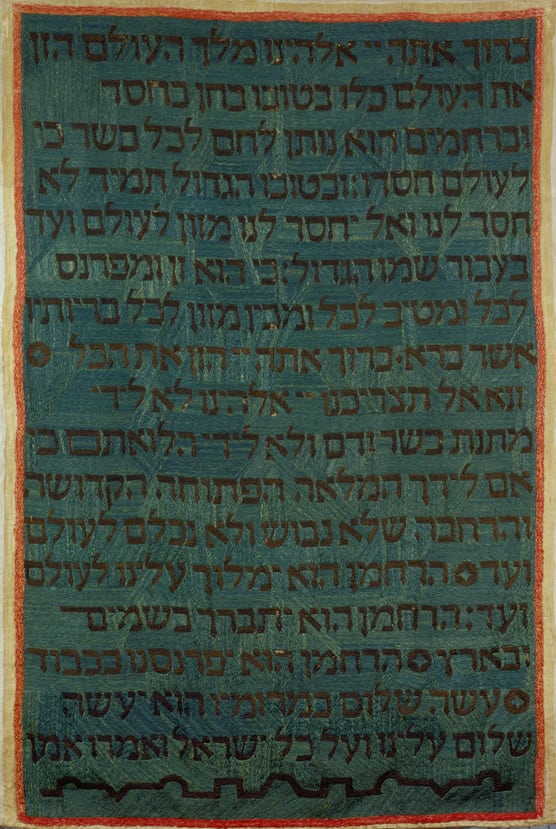 ברוך אתה יי אלהינו מלך העולם הזן
את העולם כלו בטובו בחן בחסד
וברחמים הוא נותן לחם לכל בשר כי
לעולם חסדו: ובטובו הגדול תמיד לא
חסר לנו ואל יחסר לנו מזון לעולם ועד
בעבור שמו הגדול: כי הוא זן ומפרנס
לכל ומטיב לכל ומכין מזון לכל בריותיו
אשר ברא: ברוך אתה יי הזן את הכל
ונא אל תצריכנו יי אלהינו לא ליד
מתנות בשר ודם ולא לידי הלואתם כ
אם לידך המלאה הפתוחה הקדושה
והרחבה שלא נבוש ולא נכלם לעולם
ועד הרחמן הוא ימלוך עלינו לעולם
ועד: הרחמן הוא יתברך בשמים
ובארץ הרחמן הוא יפרנסנו בכבוד
עשה שלום במרומיו הוא יעשה
שלום עלינו ועל כל ישראל ואמרו אמן